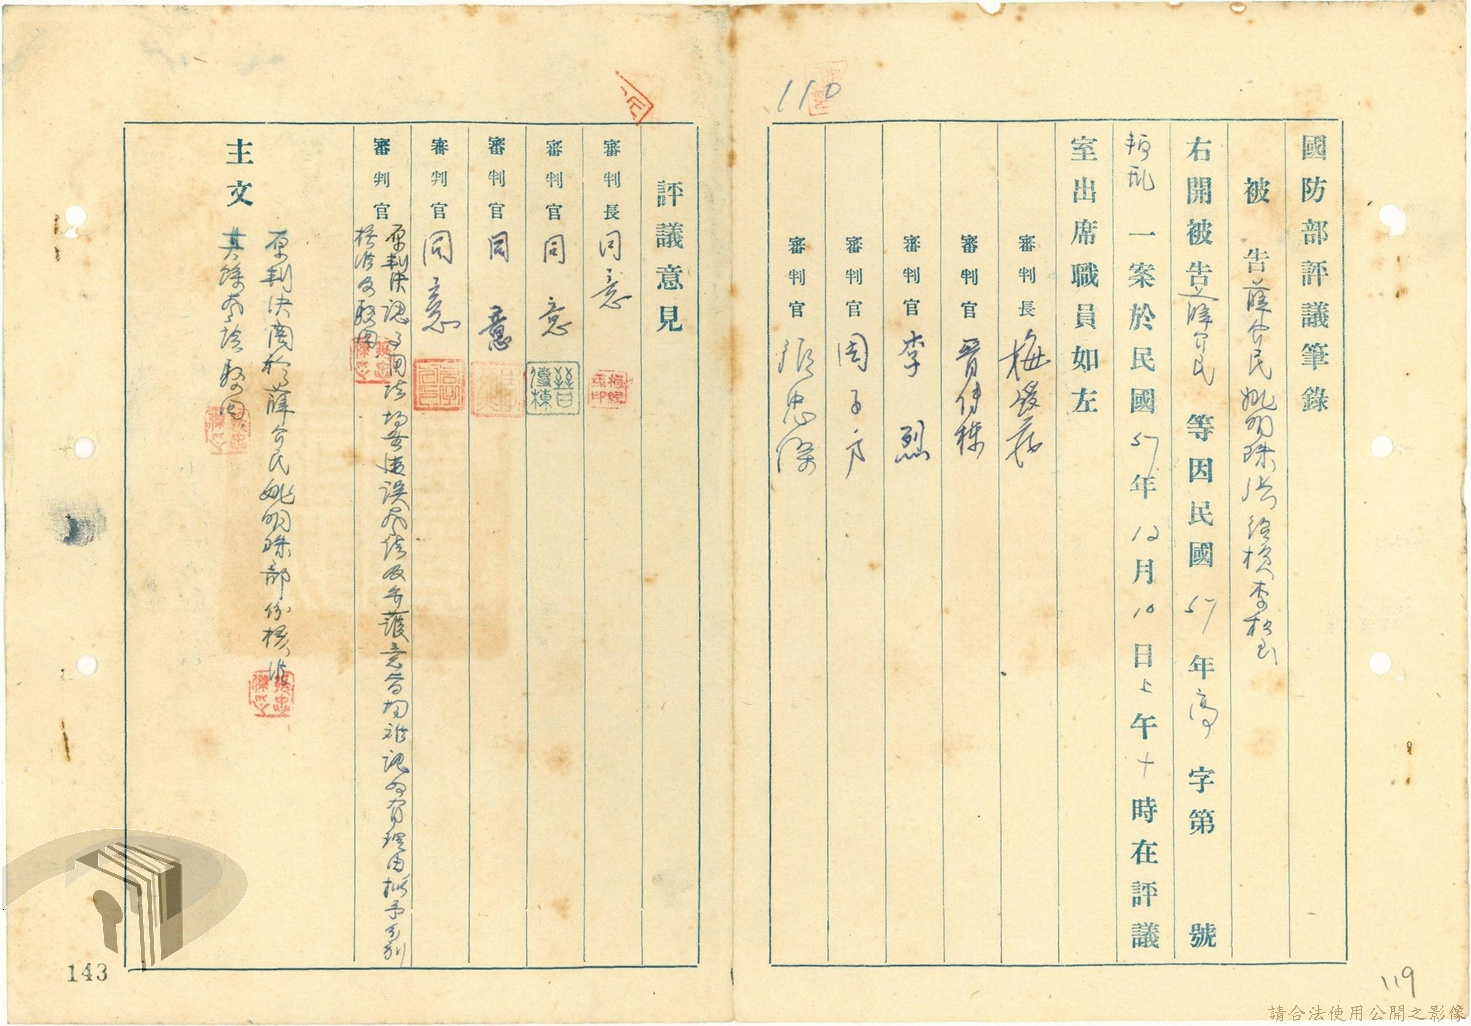 110
國防部評議筆錄
被告薛介民 姚明珠 洪 李松山
右開被告薛介民等因民國57年高字第 號
叛亂一案於民國57年12月10日上午十時在評議
室出席職員如左
審判長 梅
審判官 晉傳棟
審判官 李烈
審判官 周子方
審判官 張忠傑
評議意見
審判長 同意
審判官 同意
審判官 同意
審判官 同意
審判官 原判決認事用法 均難認為有理由擬予分別
核准及駁回
主文 原判決關於薛介民姚明珠部份核准
其餘聲請駁回
143
119
請合法使用公開之影像